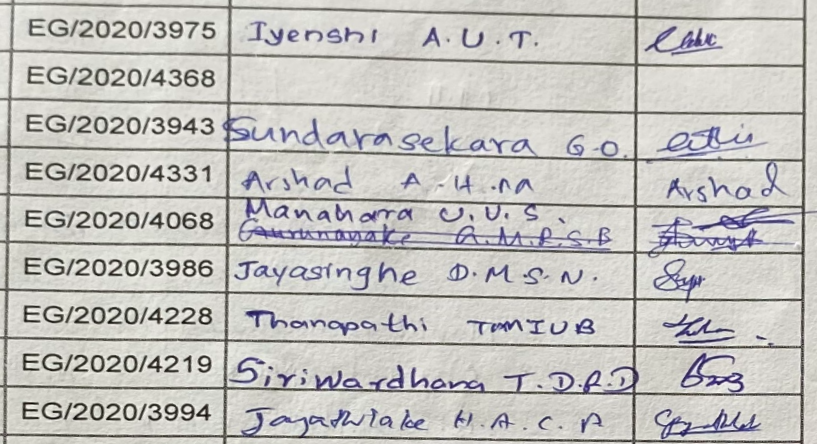 EG/2020/3975 Iyenshi A.U.T.
EG/2020/4368
EG/2020/3943 Sundarasekara G.O.
EG/2020/4331 Arshad A.H.MA Arshad
EG/2020/4068 Manahara U.U.S.
Gurunayake G.M.R.S.B
EG/2020/3986 Jayasinghe D.M.S.N.
EG/2020/4228 Thanapathi TMMIUB
EG/2020/4219 Siriwardhana T.D.R.D
EG/2020/3994 Jayathilake H.A.C.P